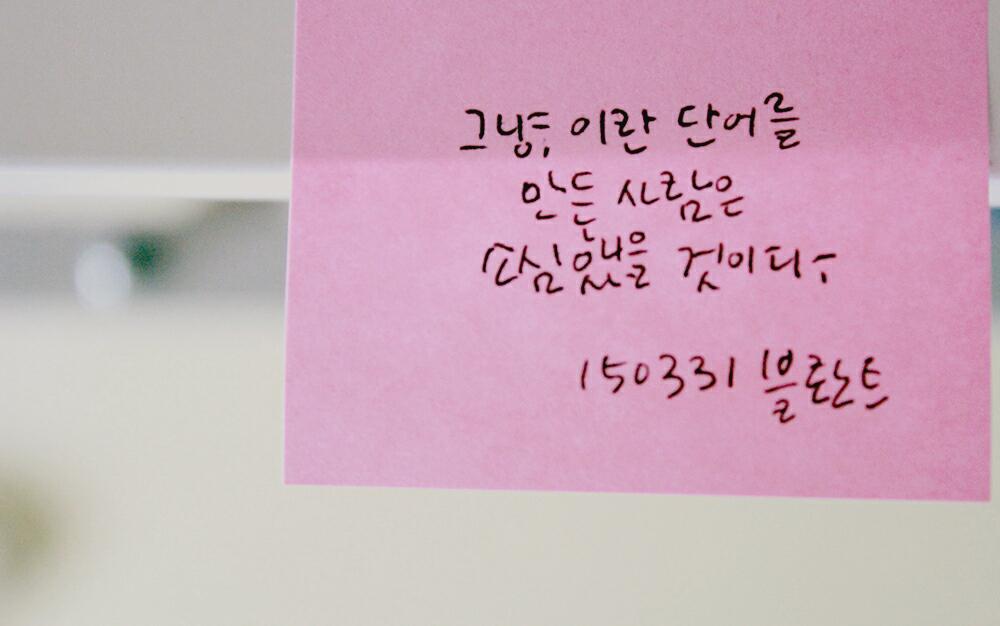 그냥, 이란 단어를
만든 사람은
소심했을 것이다.
150331 블로노트